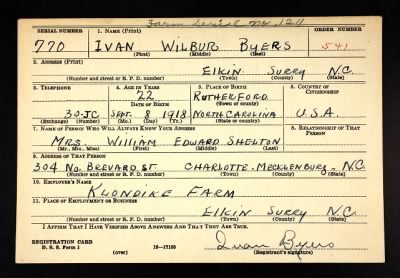 Farm Serial No. 1211
SERIAL NUMBER 1. NAME (Print) ORDER NUMBER
770 IVAN WILBUR BYERS 541
(First) (Middle) (Last)
2. ADDRESS (Print)
Elkin Surry N.C.
(Number and street or R. F. D. number) (Town) (County) (State)
3. TELEPHONE 4. AGE IN YEARS 5. PLACE OF BIRTH 6. COUNTRY OF CITIZENSHIP
22 RUTHERFORD
DATE OF BIRTH (Town or county)
30-JC SEPT. 8 1918 NORTH CAROLINA U.S.A.
(Exchange) (Number) (Mo.) (Day) (Yr.) (State or country)
7. NAME OF PERSON WHO WILL ALWAYS KNOW YOUR ADDRESS 8. RELATIONSHIP OF THAT PERSON
MRS. WILLIAM EDWARD SHELTON
(Mr., Mrs., Miss) (First) (Middle) (Last)
9. ADDRESS OF THAT PERSON
304 No. BREVARD ST CHARLOTTE - MECKLENBURG - N.C.
(Number and street or R. F. D. number) (Town) (County) (State)
10. EMPLOYER'S NAME
KLONDIKE FARM
11. PLACE OF EMPLOYMENT OR BUSINESS
Elkin Surry N.C.
(Number and street or R. F. D. number) (Town) (County) (State)
I AFFIRM THAT I HAVE VERIFIED ABOVE ANSWERS AND THAT THEY ARE TRUE.
REGISTRATION CARD
D. S. S. Form 1 16-17105 Ivan Byers
(over) (Registrant's signature)